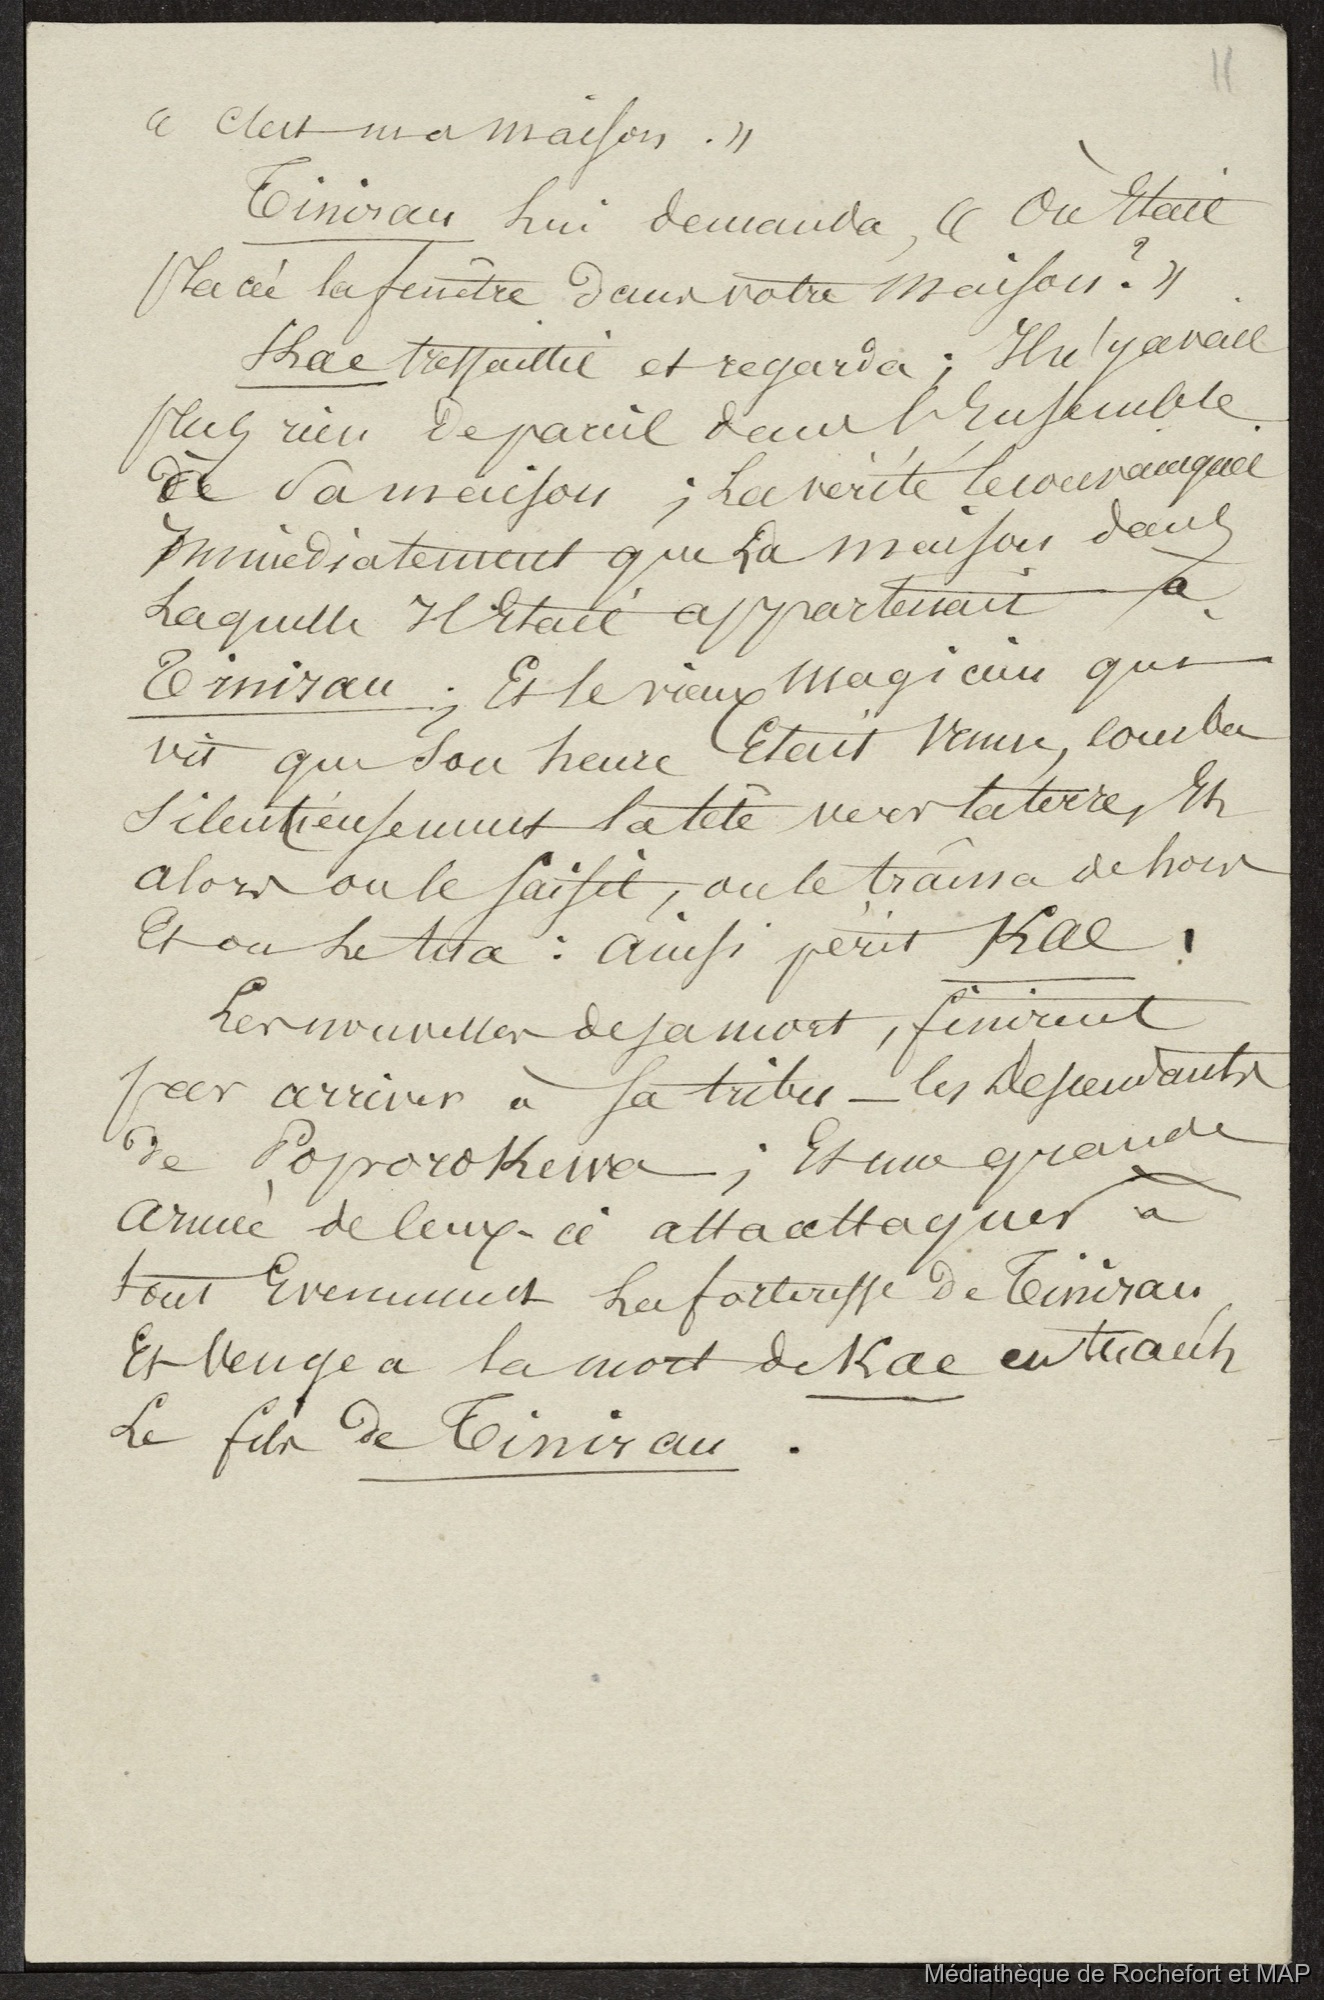 11
« C'est ma maison . »
Tinirau lui demanda, « Où Etait
placée la fenêtre dans votre maison ? »
Khae tressaillit et regarda ; Il n'y avait
plus rien de pareil dans l'Ensemble
de Sa maison ; La vérité le convainquit
Immédiatement que La maison dans
Laquelle Il Etait appartenait à
Tinirau ; Et le vieux magicien qui
vit que Son heure Etait Venue, courba
Silentieusement la tête vers la terre, Et
alors on le Saisit, on le traîna dehors
Et on Le tua : ainsi périt Kae !
Les nouvelles de sa mort, finirent
par arriver à Sa tribu — les Descendants
de Poporokewa ; Et une grande
armée de ceux-ci attaattaquer à
tout Evenement La forteresse De Tinirau
Et Vengea la mort de Kae en tuant
Le fils De Tinirau .
Médiathèque de Rochefort et MAP